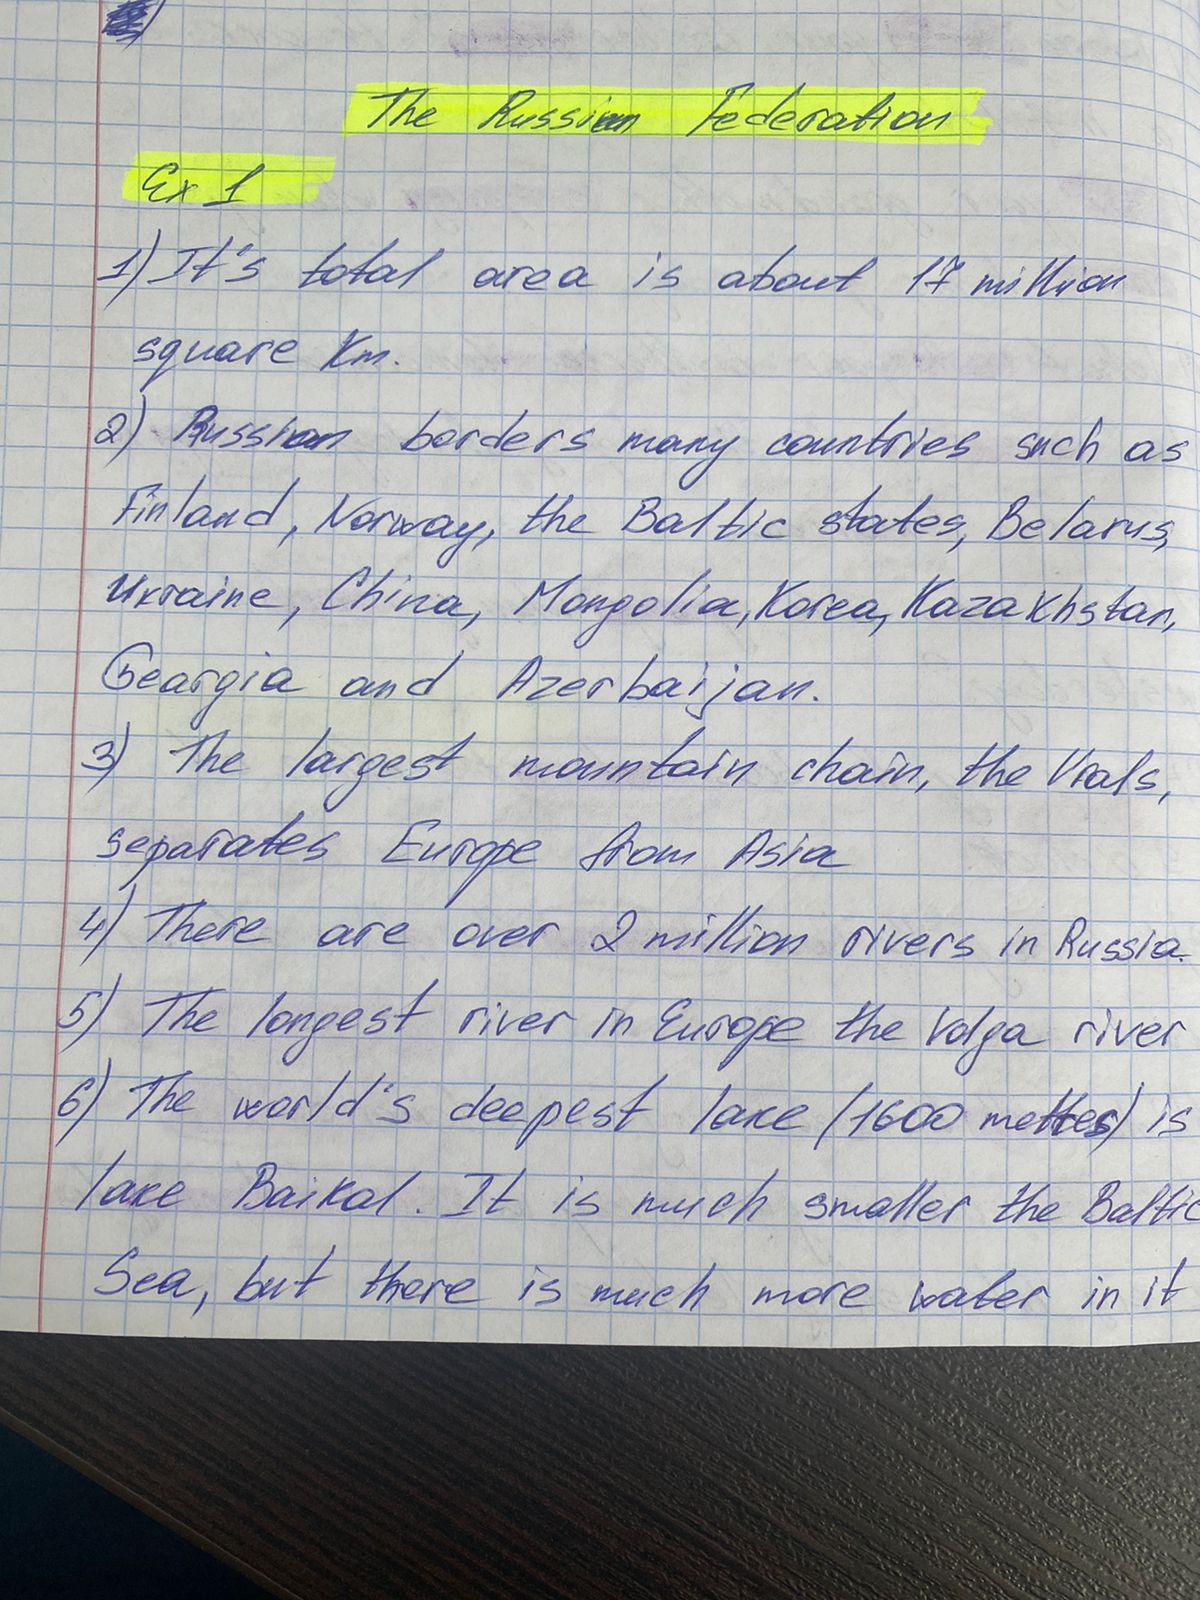 The Russian Federation
Ex 1
1) It's total area is about 17 million
square km.
2) Russian borders many countries such as
Finland, Norway, the Baltic states, Belarus,
Ukraine, China, Mongolia, Korea, Kazakhstan,
Geargia and Azerbaijan.
3) The largest mountain chain, the Urals,
separates Europe from Asia
4) There are over 2 million rivers in Russia.
5) The longest river in Europe the Volga river
6) The world's deepest lake (1600 mettes) is
lake Baikal. It is much smaller the Baltic
Sea, but there is much more water in it